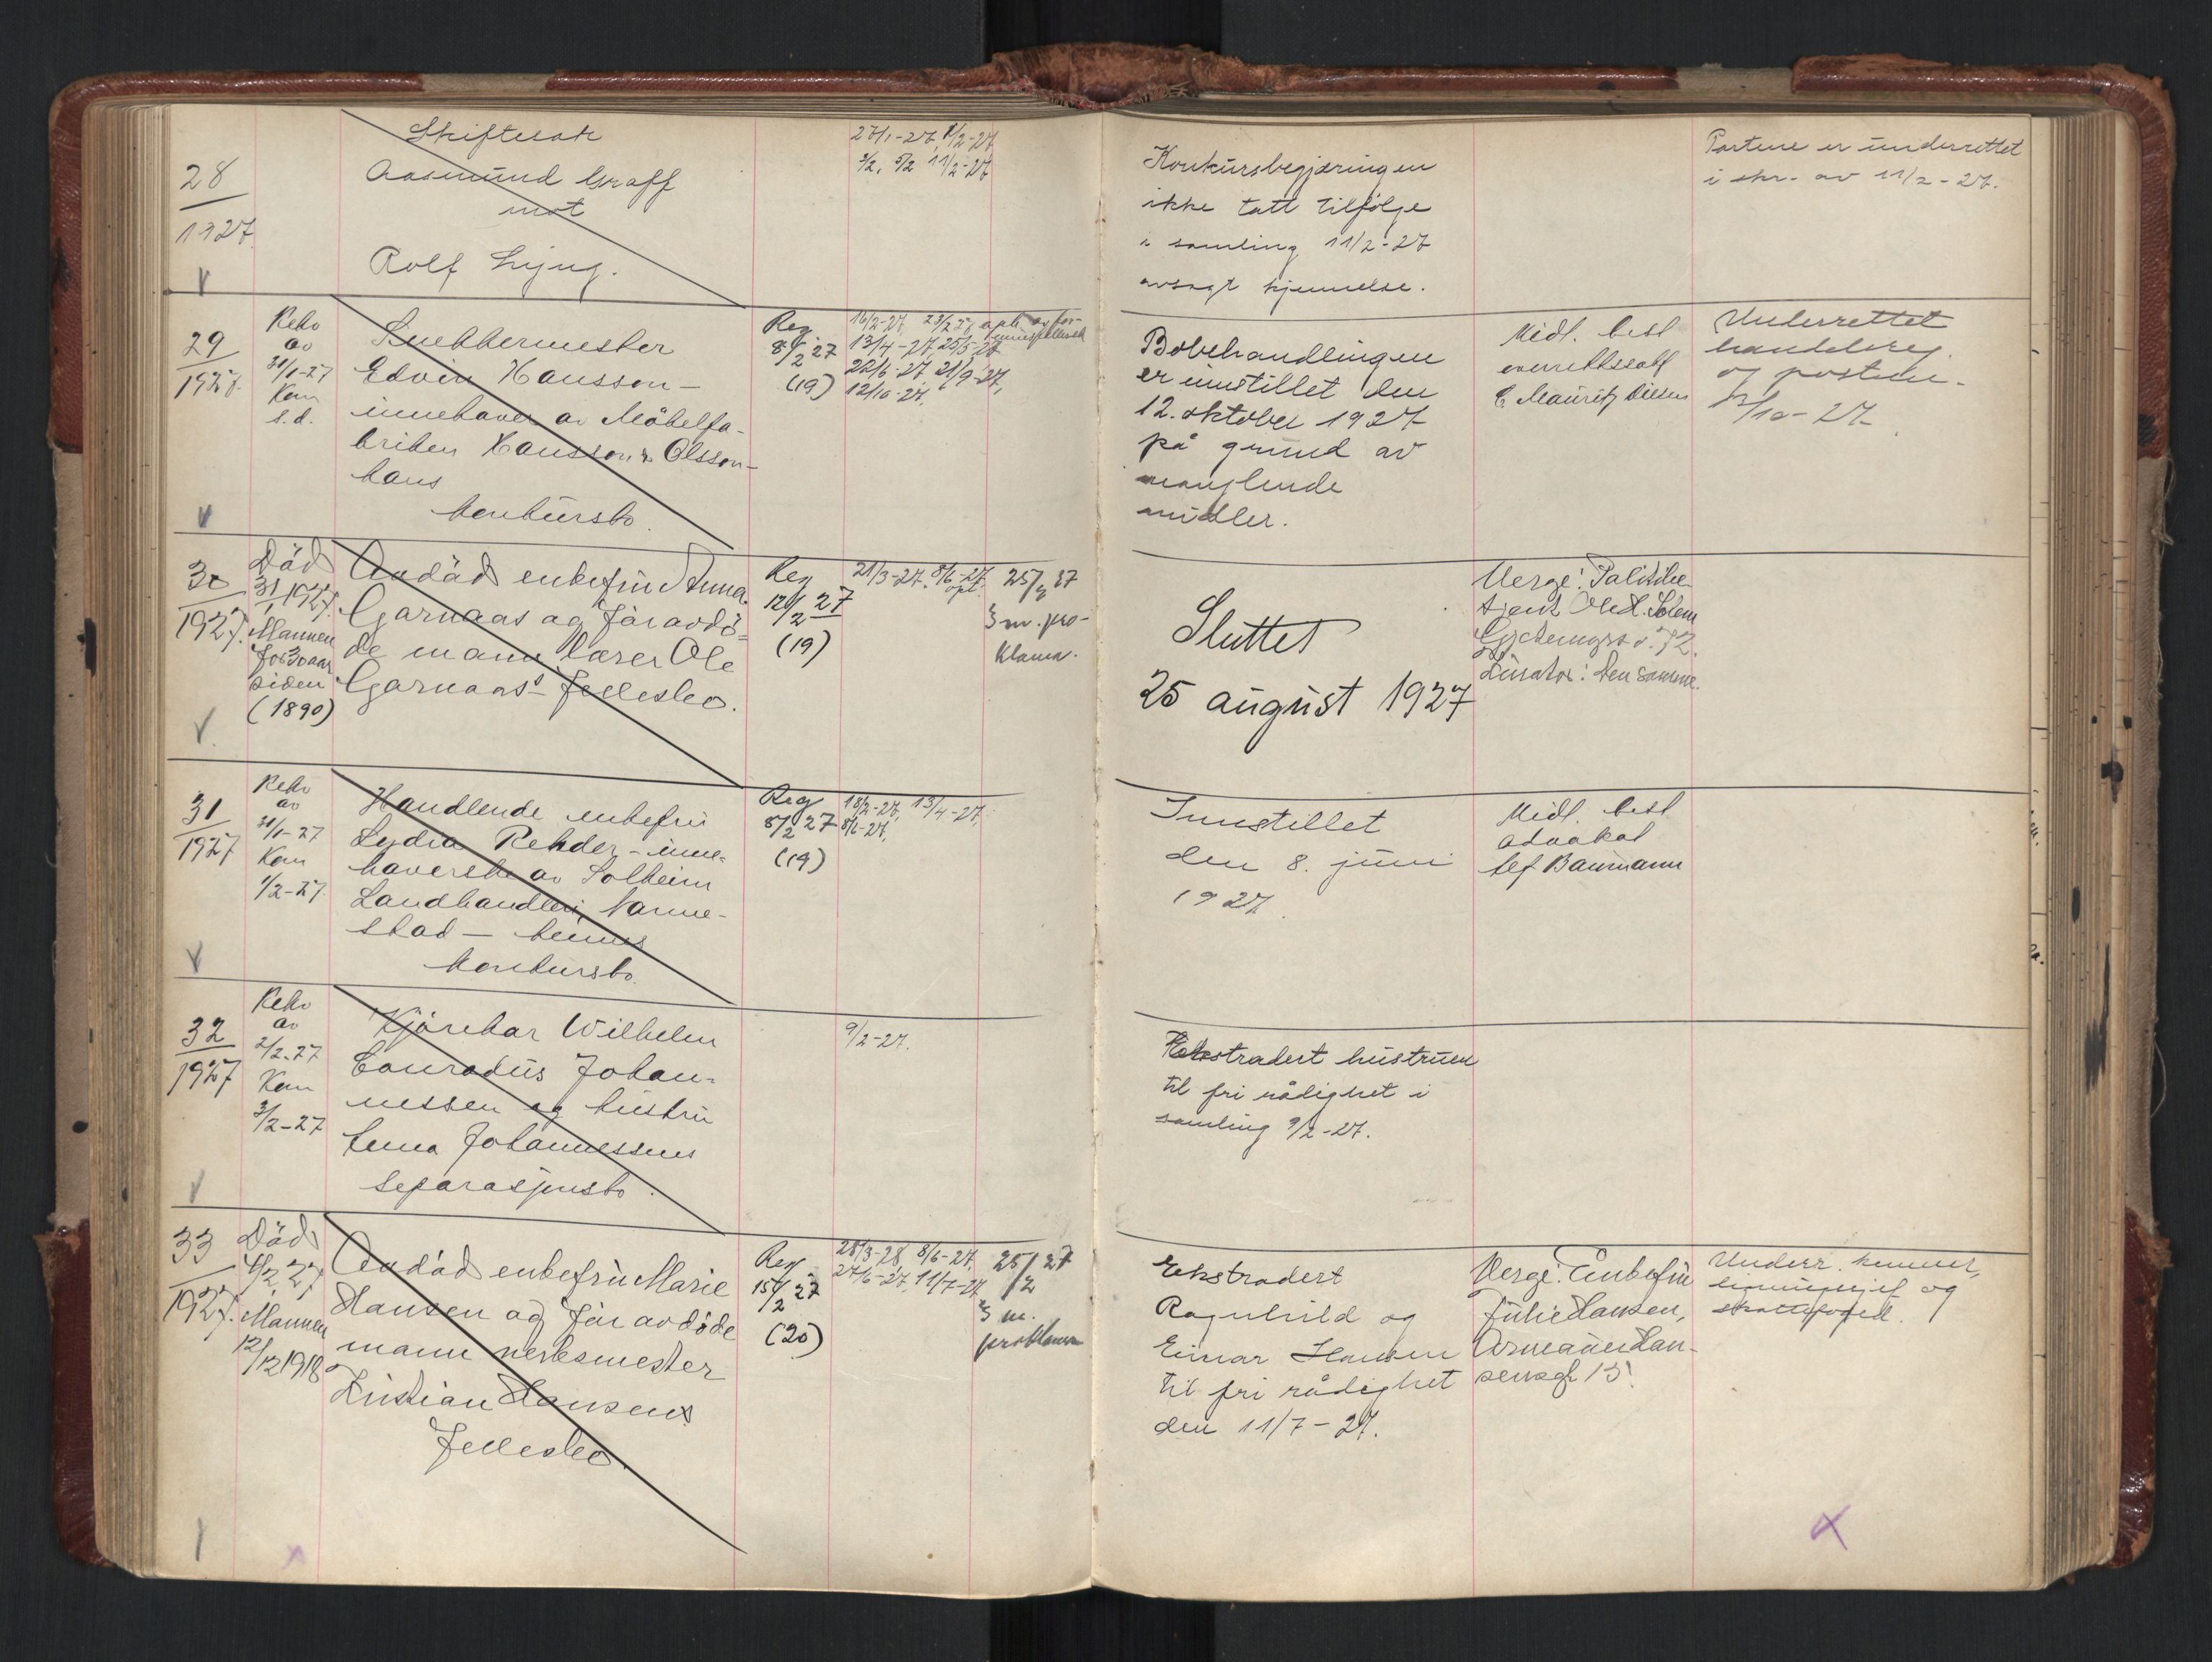 28
1927
Skiftesak
Aasmund Graff
mot
Rolf Ljung.
27/1-27, 1/2-27
3/2, 5/2 11/2-27
Konkursbegjæringen
ikke tatt tilfölge
i samling 11/2-27
avsagt kjennelse.
Partene er underrettet
i skr. av 11/2-27.
29
1927.
Rekv
av
31/1-27
Kom
s.d.
Snekkermester
Edvin Hansson -
innehaver av Möbelfa-
briken Hansson & Olsson -
hans
konkursbo.
Reg
8/2 27
(19)
16/2-27, 23/2 27
13/4-27, 25/5-27
22/6-27, 21/9-27,
12/10-27.
Bobehandlingen
er innstillet den
12. oktober 1927
på grund av
manglende
midler.
Midl. best
overrettssakf
C. Mauritz
Underrettet
handelsreg.
og
/10-27.
30
1927.
Död
31/1 1927.
Mannen
for 30 aar
siden
(1890)
Avdöd enkefru Anna
Garnaas og för avdö-
de mann lærer Ole
Garnaas' fellesbo.
Reg
12/2 27
(19)
21/3-27. 8/6-27.
opt.
25/2 27
3 m. pro-
klama.
Sluttet
25 august 1927
Verge: Politibe
tjent Ole H. Solem
72.
Kurator: den samme.
31
1927
Rekv
av
31/1-27
Kom
1/2-27.
Handlende enkefru
Lydia Rehder - inne-
haverske av Solheim
Landhandleri,
stad - hennes
konkursbo.
Reg
8/2 27
(19)
18/2-27, 13/4-27,
8/6-27.
Innstillet
den 8. juni
1927.
Midl. best
advokat
Alf Baumann
32
1927
Rekv
av
2/2-27
Kom
3/2-27
Kjörekar Wilhelm
Conradus Johan-
nessen og hustru
Anna Johannessens
separasjonsbo.
9/2-27.
Ekstradert hustruen
til fri rådighet i
samling 9/2-27.
33
1927.
Död
4/2 27
Mannen
12/12 1918
Avdöd enkefru Marie
Hansen og för avdöde
mann verksmester
Kristian Hansens
fellesbo.
Reg
15/2 27
(20)
28/3-28, 8/6-27,
27/6-27, 11/7-27
25/2 27
3 m.
proklama
Ekstradert
Ragnhild og
Einar Hansen
til fri rådighet
den 11/7-27.
Verge: Enkefru
Julie Hansen,
Armauer Han-
sensgt 15.
Underr.
og
skattefoged.